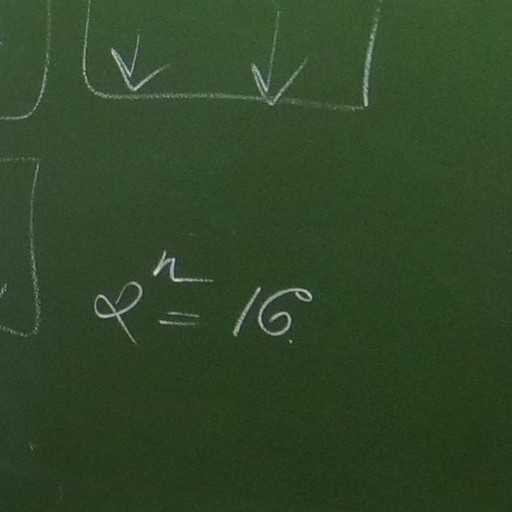 2ⁿ = 16